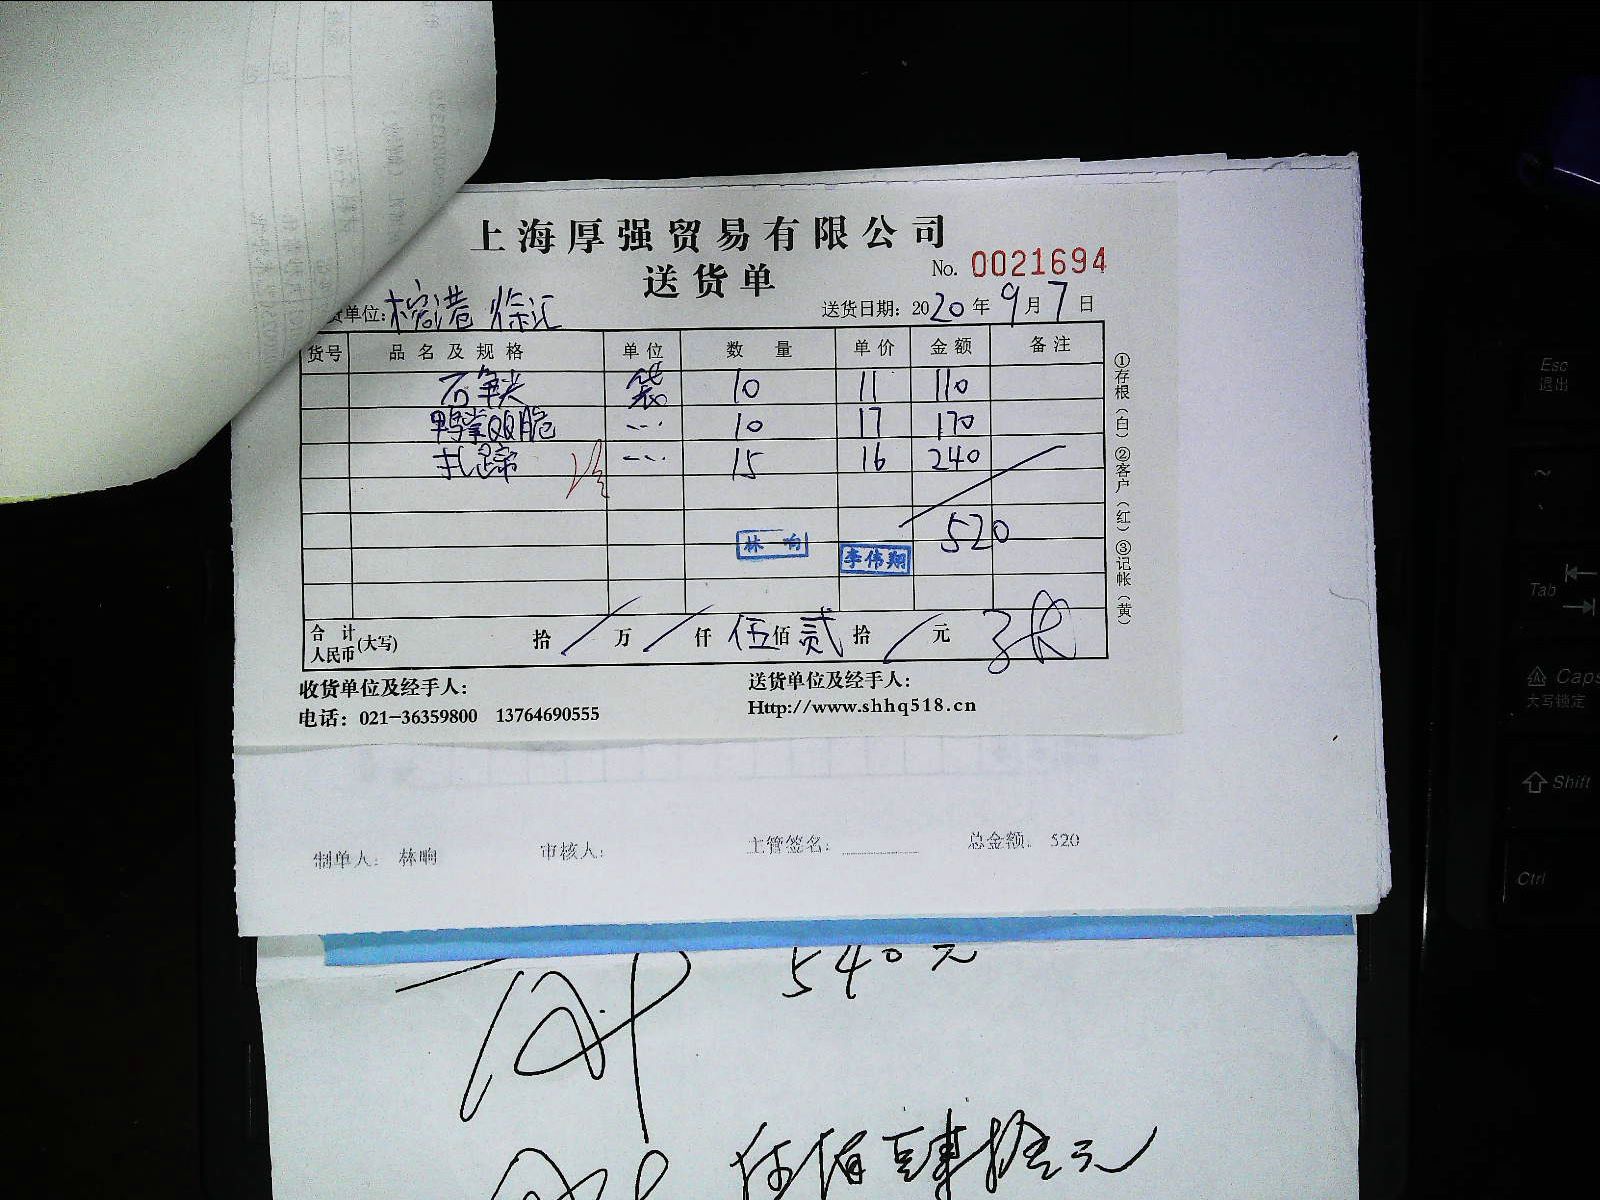 上海厚强贸易有限公司
送货单
No. 0021694
货单位: 榕港 徐汇
送货日期: 2020年9月7日
货号 品名及规格 单位 数量 单价 金额 备注
石
袋 10 11 110
鸭掌QQ脆 〃 10 17 170
扎蹄 〃 15 16 240
520
林 响
李伟翔
合计人民币(大写) 拾 / 万 / 仟 伍佰 贰拾 / 元
收货单位及经手人:
送货单位及经手人:
电话: 021-36359800 13764690555
Http://www.shhq518.cn
①存根(白) ②客户(红) ③记帐(黄)
制单人: 林响 审核人: 主管签名: 总金额: 520
540元
伍佰肆拾元
Esc
退出
~
Tab
Caps
大写锁定
Shift
Ctrl